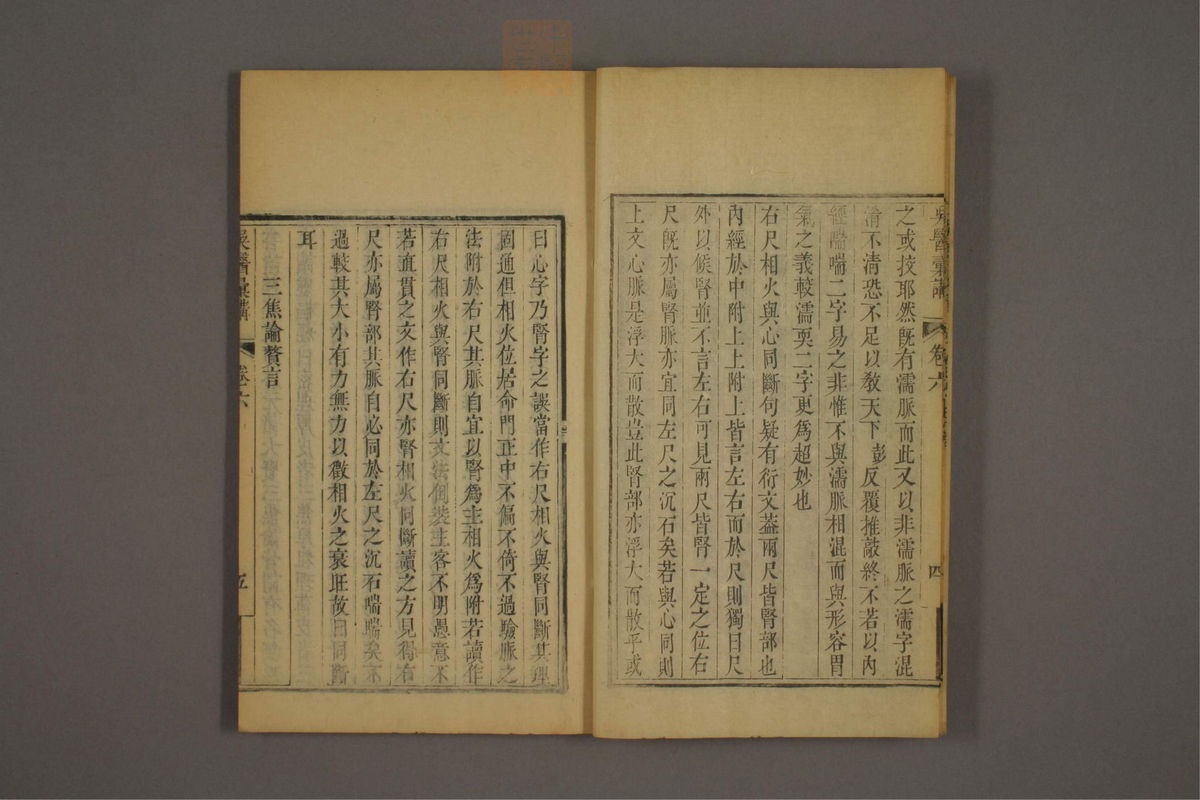 吳醫彙講
卷六
四
之或按耶然既有濡脈而此又以非濡脈之濡字混
淆不清恐不足以敎天下彭反覆推敲終不若以內
經喘喘二字易之非惟不與濡脈相混而與形容胃
氣之義較濡耎二字更爲超妙也
右尺相火與心同斷句疑有衍文葢兩尺皆腎部也
內經於中附上上附上皆言左右而於尺則獨曰尺
外以候腎並不言左右可見兩尺皆腎一定之位右
尺既亦屬腎脈亦宜同左尺之沉石矣若與心同則
上文心脈是浮大而散豈此腎部亦浮大而散乎或
曰心字乃腎字之誤當作右尺相火與腎同斷其理
固通但相火位居命門正中不偏不倚不過驗脈之
法附於右尺其脈自宜以腎爲主相火爲附若讀作
右尺相火與腎同斷則文法倒裝主客不明愚意不
若直貫之文作右尺亦腎相火同斷讀之方見得右
尺亦屬腎部其脈自必同於左尺之沉石喘喘矣不
過較其大小有力無力以徵相火之衰旺故曰同斷
耳
三焦論贅言
吳醫彙講
卷六
五